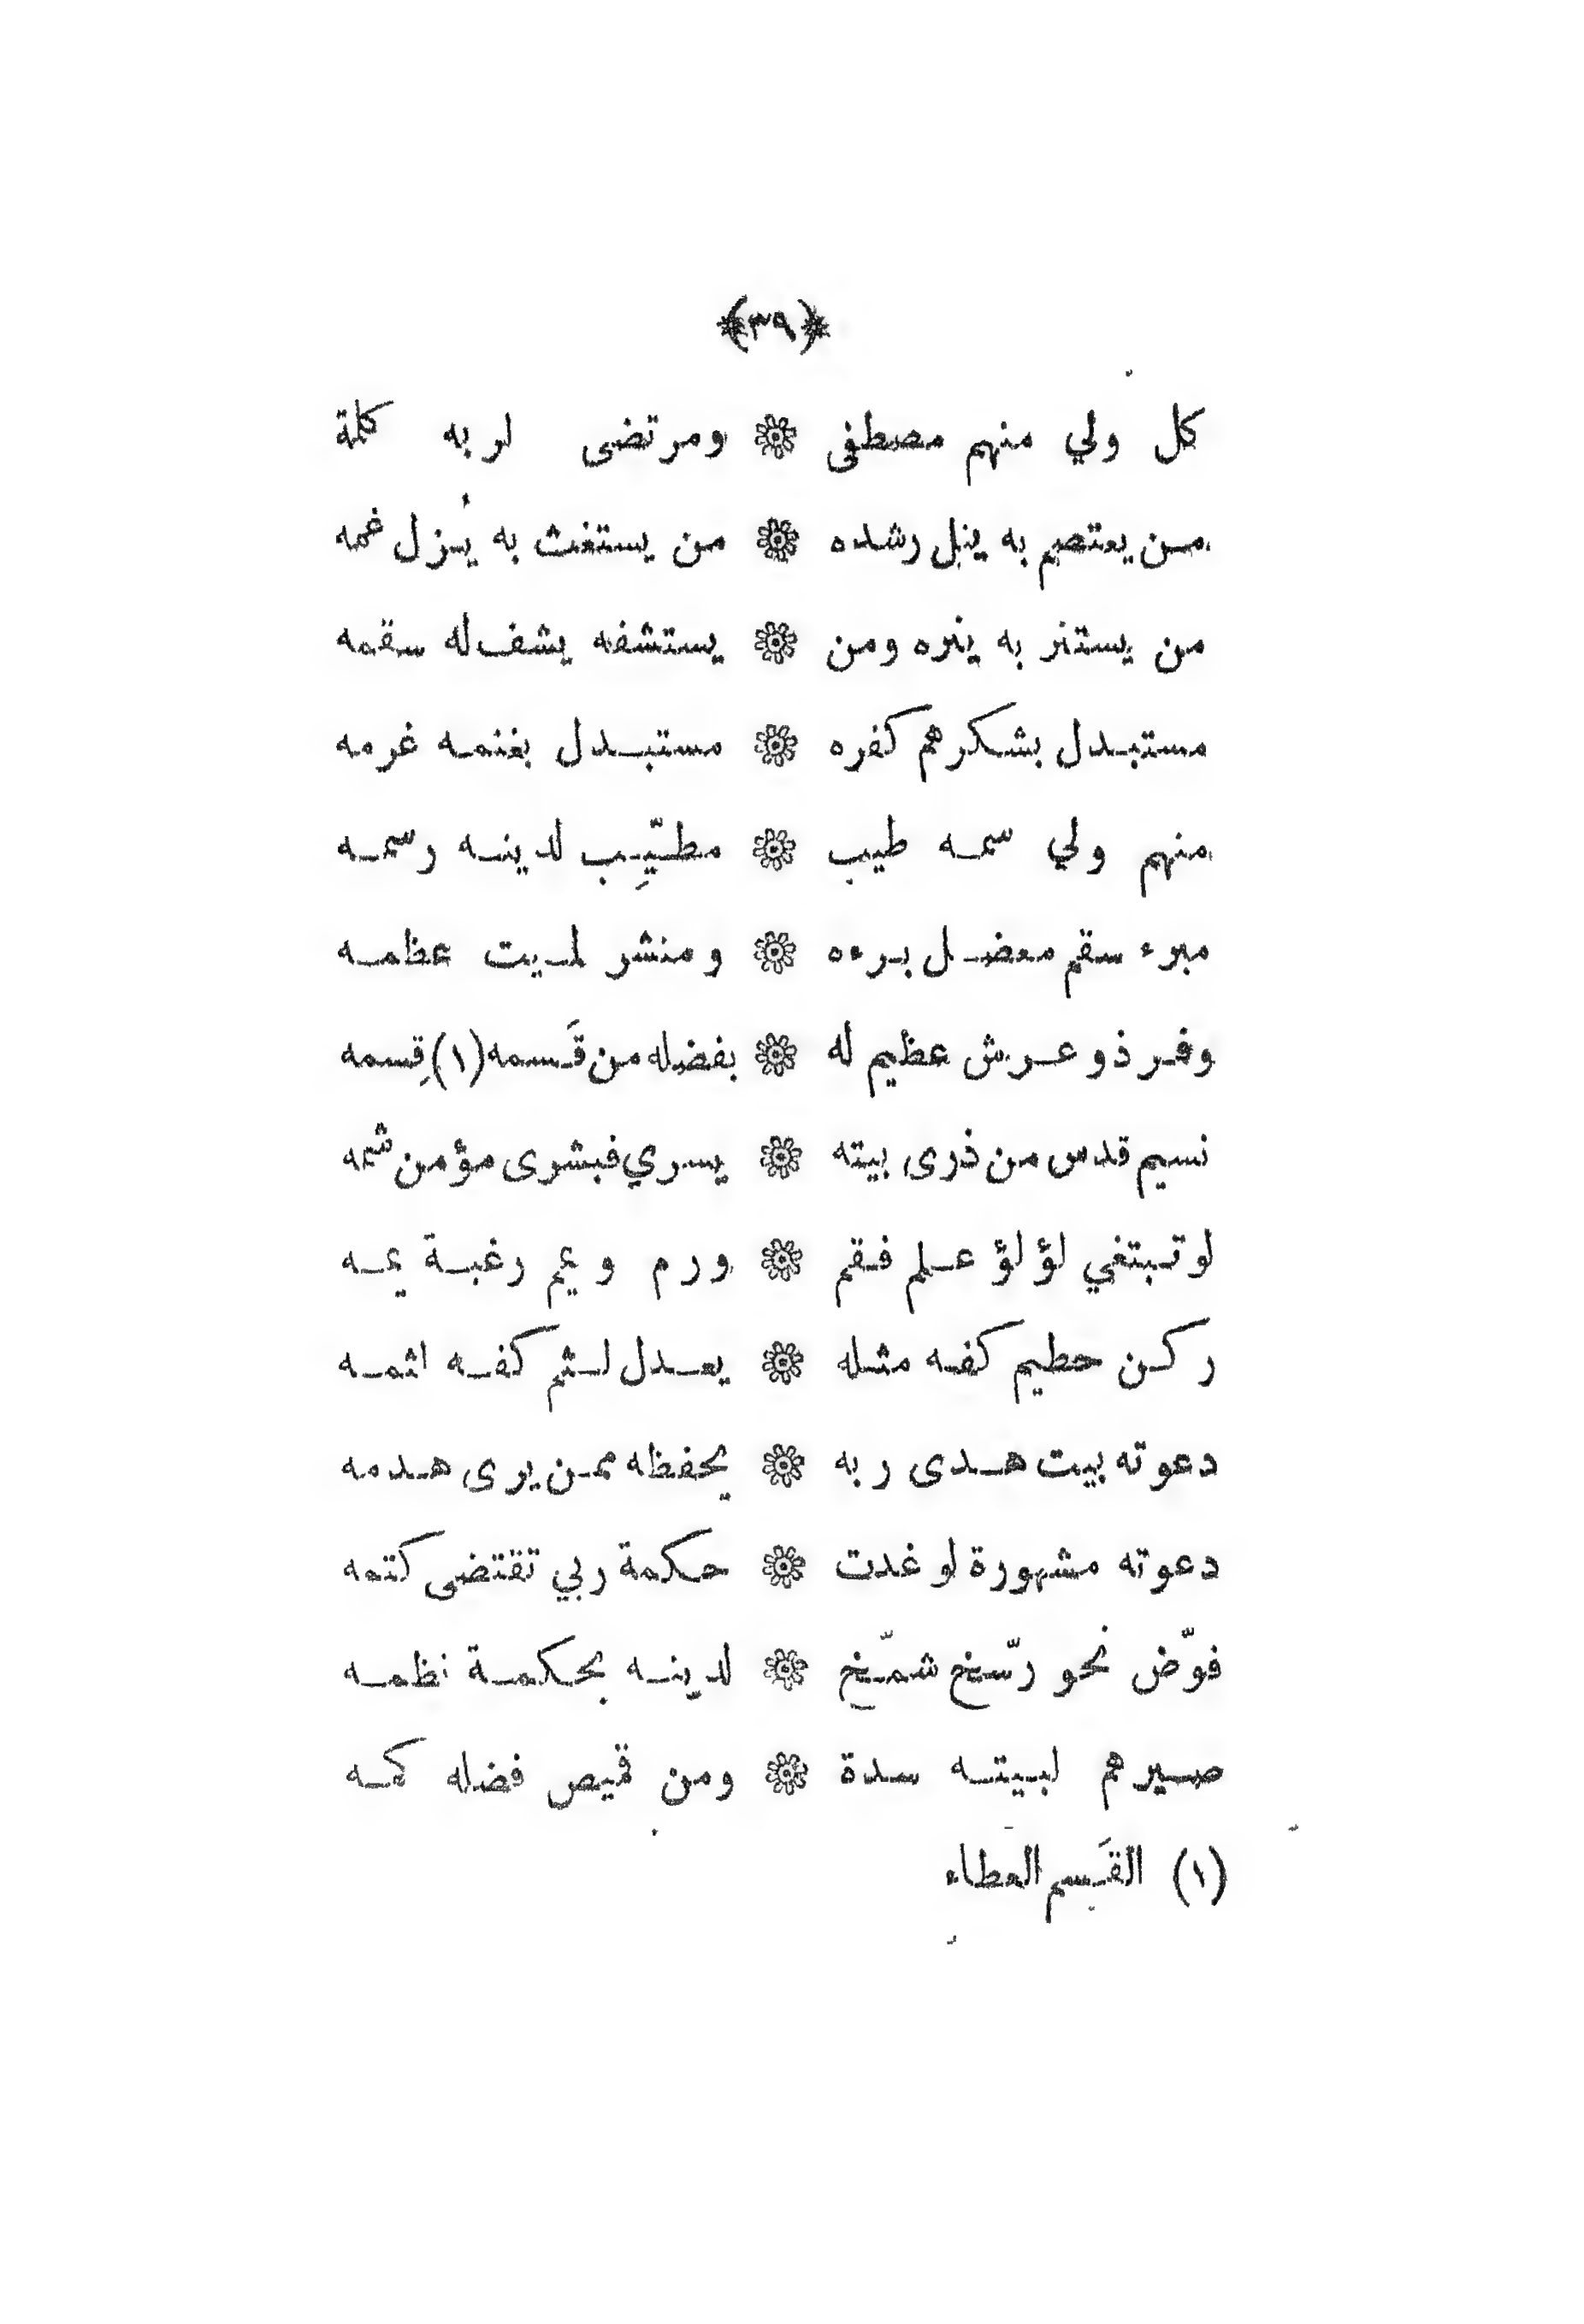 ﴿٣٩﴾
كل ولي منهم مصطفى ۞ ومرتضى لربه كلمة
من يعتصم به ينل رشده ۞ من يستغث به يُزل غمه
من يستنر به ينره ومن ۞ يستشفه يشف له سقمه
مستبدل بشكرهم كفره ۞ مستبدل بغنمه غرمه
منهم ولي سمه طيب ۞ مطيِّب لدينه رسمه
مبرء سقم معضل برءه ۞ ومنشر لميت عظمه
وفر ذو عرش عظيم له ۞ بفضله من قَسمه(١)قِسمه
نسيم قدس من ذرى بيته ۞ يسري فبشرى مؤمن شمه
لو تبتغي لؤلؤ علم فقم ۞ ورم ويم رغبة يمه
ركن حطيم كفه مثله ۞ يعدل لثم كفه اثمه
دعوته بيت هدى ربه ۞ يحفظه ممن يرى هدمه
دعوته مشهورة لو غدت ۞ حكمة ربي تقتضى كتمه
فوّض نحو رسّخ شمّخ ۞ لدينه بحكمة نظمه
صيرهم لبيته سدة ۞ ومن قميص فضله كمه
(١) القَسم العطاء